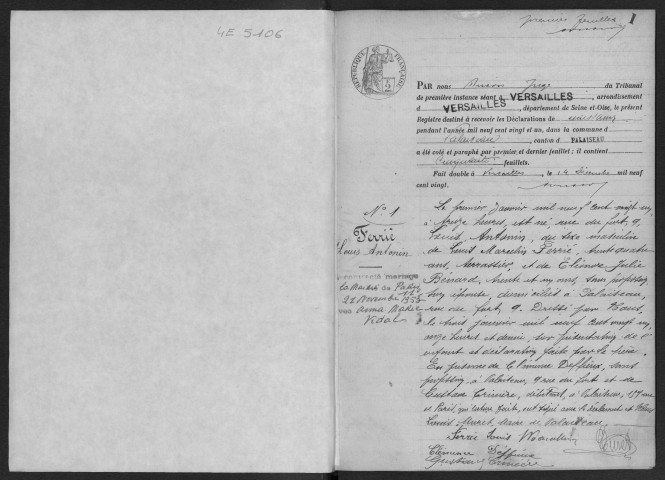 4E 5106
1
Premier feuillet
RÉPUBLIQUE FRANÇAISE
PAR nous Juge du Tribunal
de première instance séant à VERSAILLES, arrondissement
d VERSAILLES, département de Seine-et-Oise, le présent
Registre destiné à recevoir les Déclarations de naissances
pendant l'année mil neuf cent vingt et un, dans la commune d
Palaiseau, canton d PALAISEAU
a été coté et paraphé par premier et dernier feuillet; il contient
Cinquante feuillets.
Fait double à Versailles, le 14 Décembre mil neuf
cent vingt.
N° 1
Ferrié
Louis Antonin
a contracté mariage
la Mairie de
22 Novembre 1958
avec Anna
Vidal
Le premier janvier mil neuf cent vingt un,
à heures, est né rue du fort, 9,
Louis, Antonin, du sexe masculin
de Louis Marcelin Ferrié, trente quatre
ans, terrassier, et de Julie
Bénard, trente et un ans, sans profession
son épouse, domiciliés à Palaiseau,
rue du fort, 9. Dressé par Nous,
le trois janvier mil neuf cent vingt un,
onze heures et demie, sur présentation de l'
enfant et déclaration faite par le père.
En présence de Clémence sans
profession, à Palaiseau, 9 rue du fort et de
Gustave débitant, à Palaiseau, 157 rue
de Paris, qui lecture faite, ont signé avec le déclarant et Nous
Louis Muret, Maire de Palaiseau.
Ferrié Louis
Clémence
Gustave
Muret